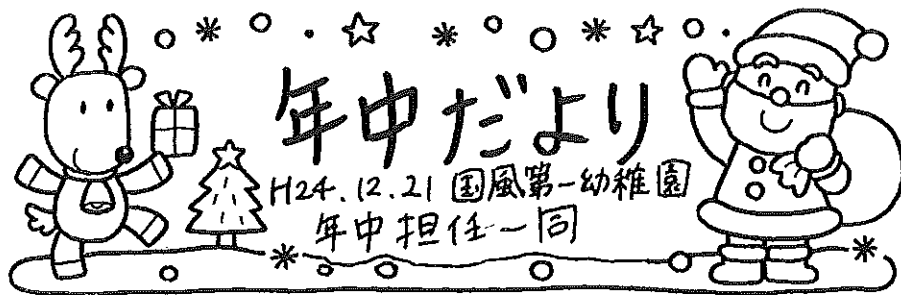 年中だより
H24.12.21 国風第一幼稚園
年中担任一同